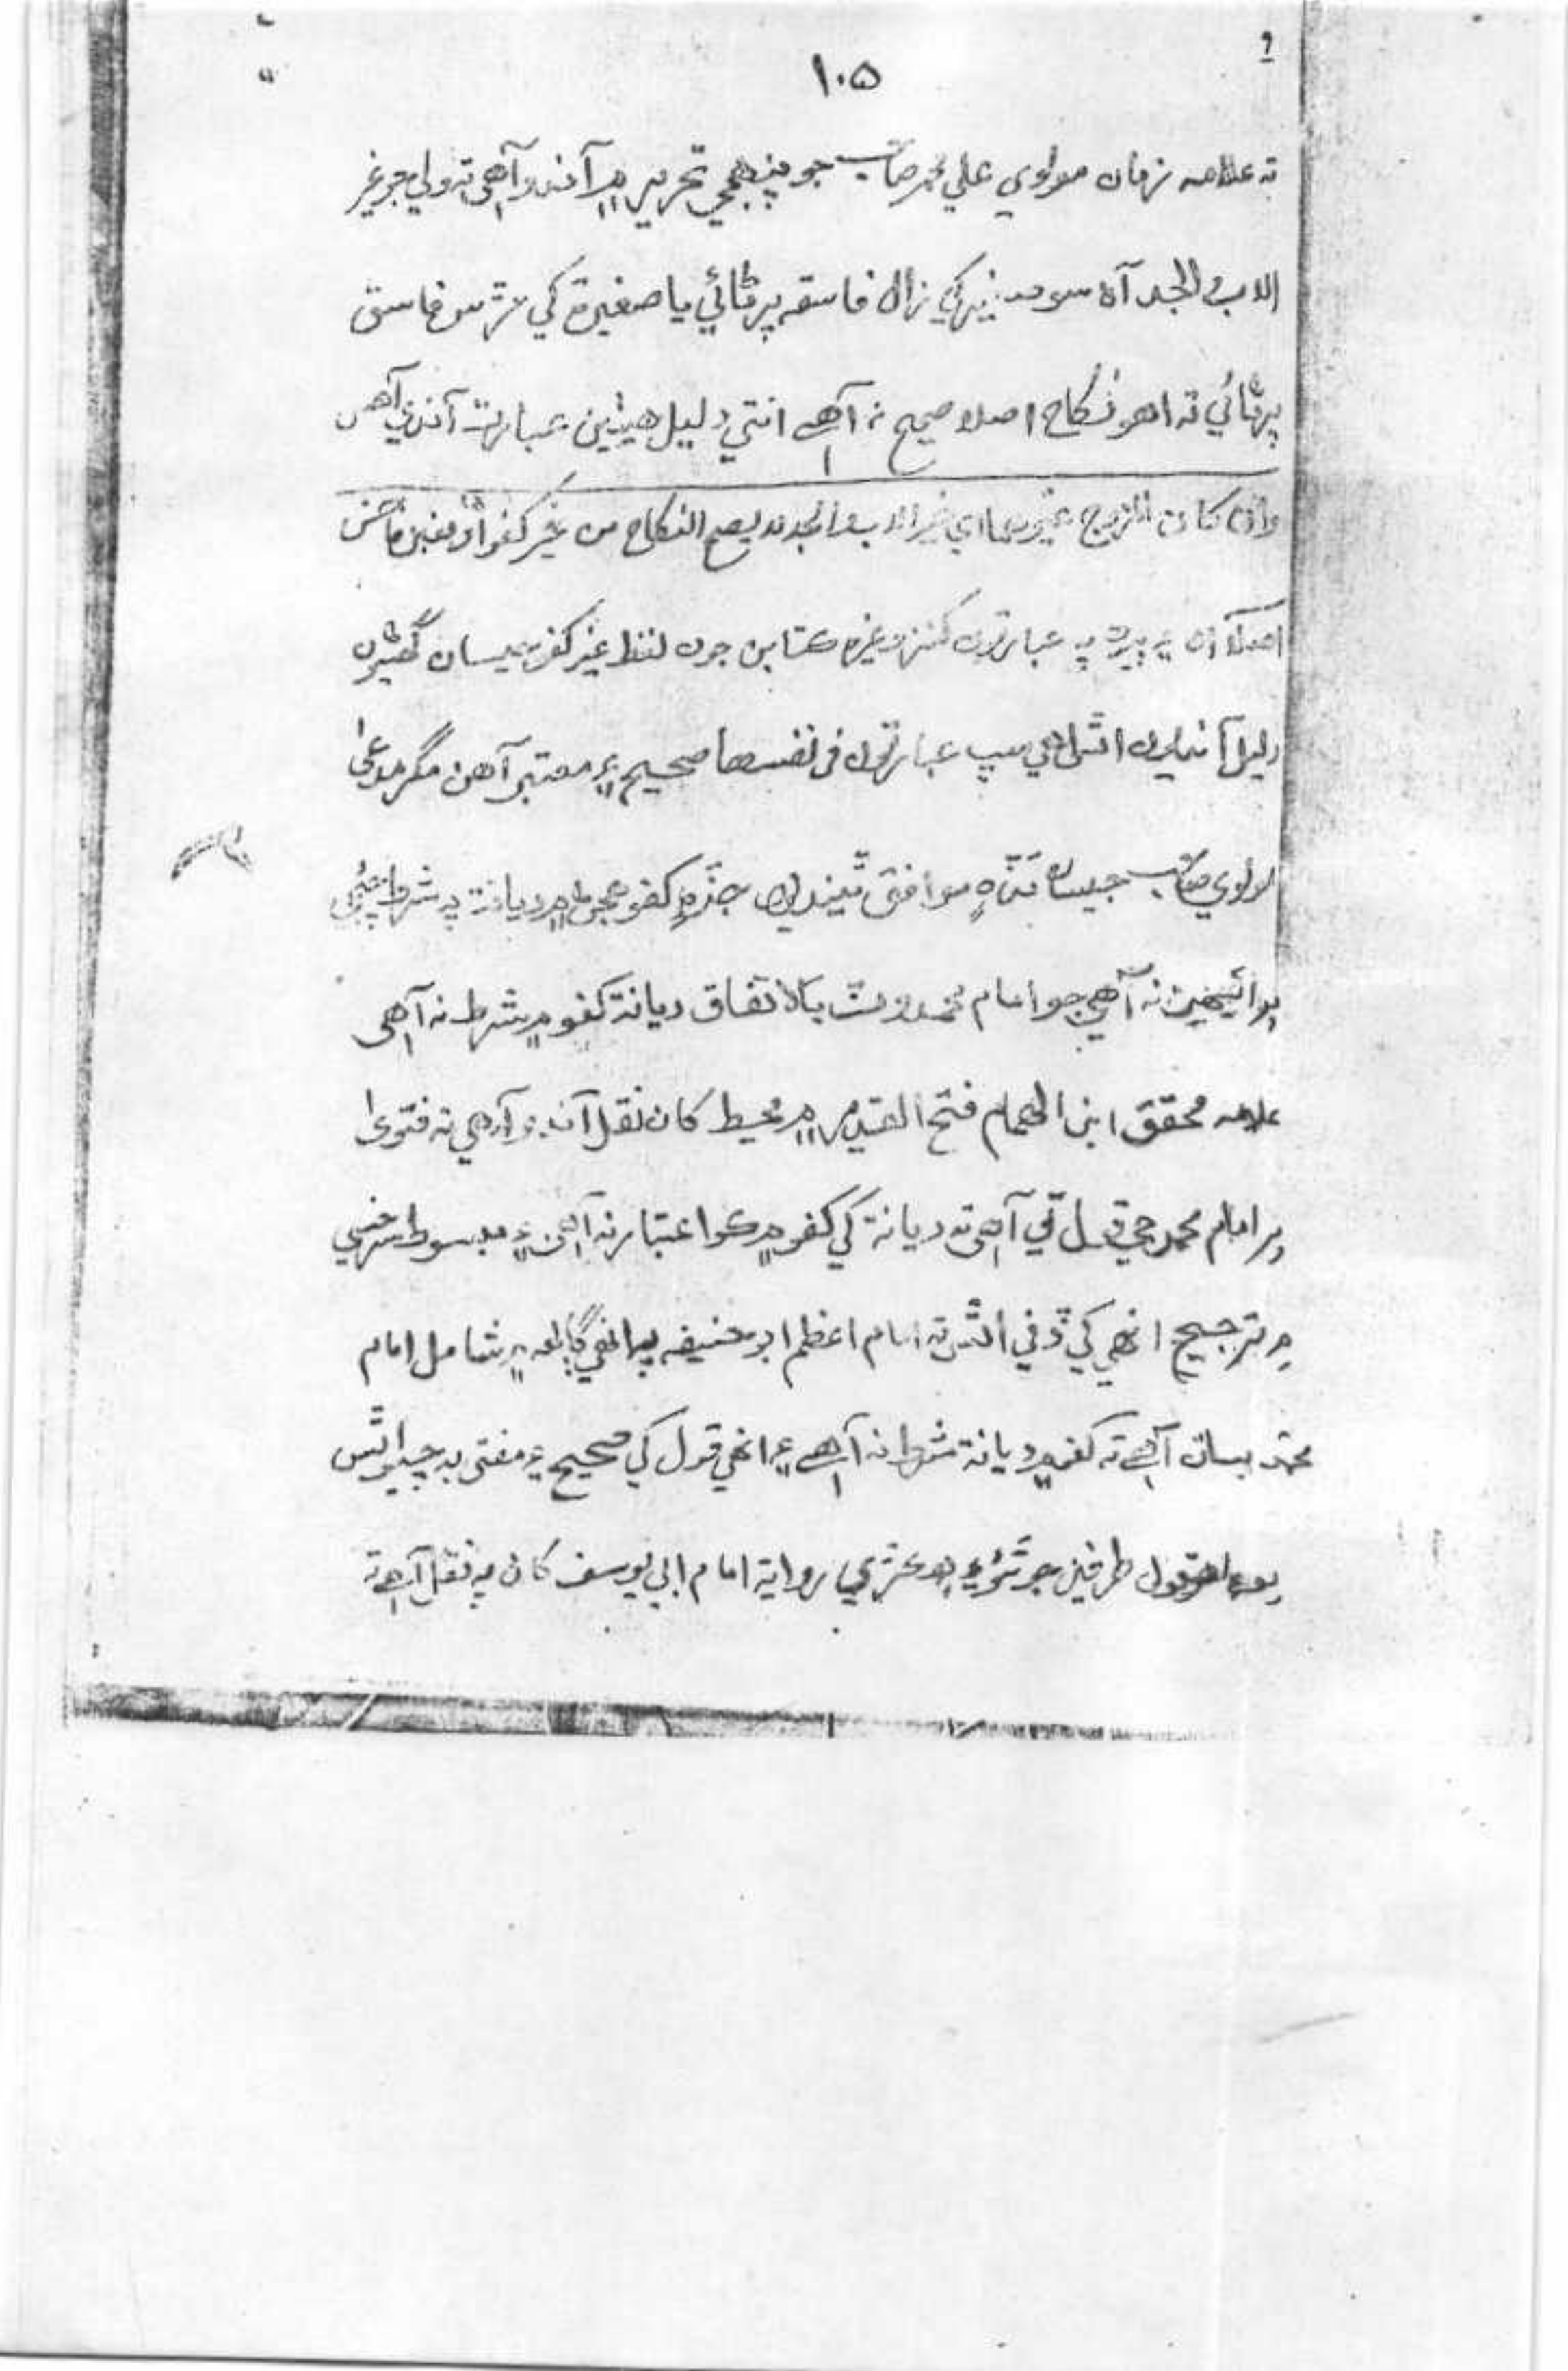 ١٠۵
ته علامه زمان مولوي علي محمد صاحب جو پنهجي تحرير ۾ آندو آهي ته ولي جو غير
الاب والجد آه سو صغير کي زال فاسقه پرڻائي يا صغيرة کي مڙس فاسق
پرڻائي ته اهو نڪاح اصلا صحيح نه آهي انتي دليل هيٺين عبارت آندي آهي
وان كان المزوج غيرهما اي غير الاب والجد لا يصح النكاح من غير كفو او بغبن فاحش
اصلا ۽ ٻيون پڻ عبارتون كنز وغيره ڪتابن جون لفظ غير كفو
دليل آندايون اٿس هي سڀ عبارتون في نفسها صحيح ۽ معتبر آهن مگر مدعیٰ
مولوي صاحب جيسان موافق ٿينديون جڏه كفو عجم ۾ ديانة به شرط
پر ائين نه آهي جو امام محمد وٽ بالاتفاق ديانة كفو ۾ شرط نه آهي
علامه محقق ابن الهمام فتح القدير ۾ محيط کان نقل آندو آهي ته فتویٰ
امام محمد جي قول تي آهي ته ديانة کي كفو ۾ ڪو اعتبار نه آهي ۽ مبسوط سرخسي
۾ ترجيح انهي کي ڏني اٿس ته امام اعظم ابو حنيفه به انهي ڳالهه ۾ شامل امام
محمد سان آهي ته كفو ۾ ديانة شرط نه آهي ۽ انهي قول کي صحيح ۽ مفتى به چيو اٿس
قول طرفين جو ٿيو ۽ رواية امام ابي يوسف کان به نقل آهي ته